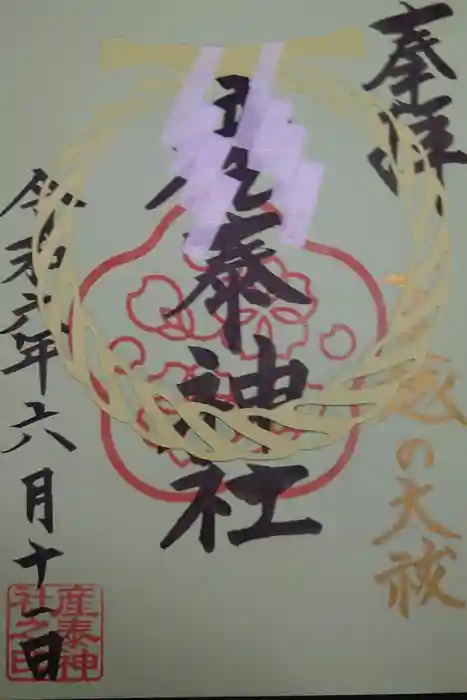 奉拝
越の大祓
産泰神社
令和六年六月十一日
産泰神
社之印